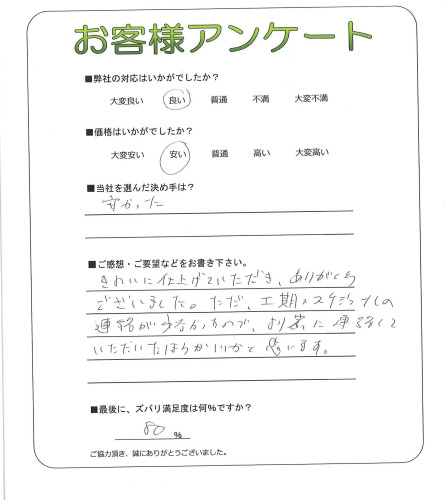 お客様アンケート
■弊社の対応はいかがでしたか?
大変良い 良い 普通 不満 大変不満
■価格はいかがでしたか?
大変安い 安い 普通 高い 大変高い
■当社を選んだ決め手は?
安かった
■ご感想・ご要望などをお書き下さい。
きれいに仕上げていただき、ありがとう
ございました。ただ、工期・スケジュールの
連絡が少なかったので、より密に連絡して
いただいたほうがいいかと思います。
■最後に、ズバリ満足度は何%ですか?
80 %
ご協力頂き、誠にありがとうございました。